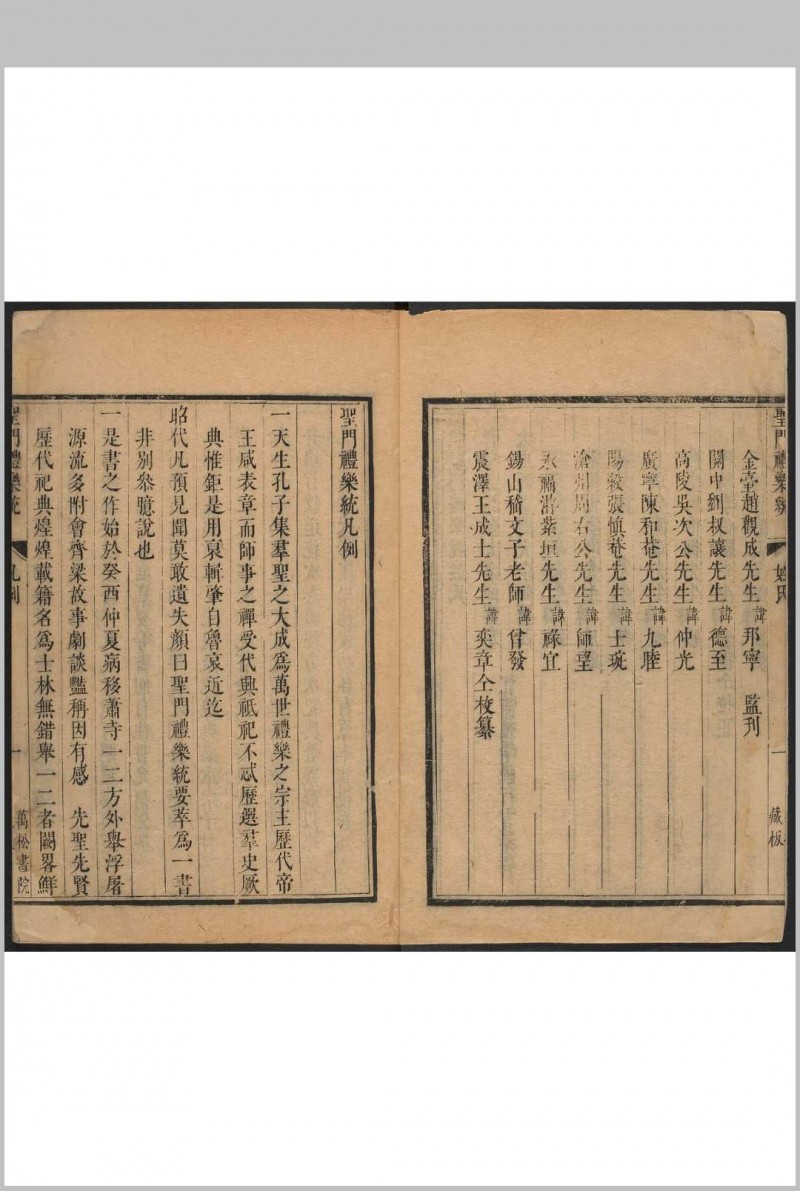 聖門禮樂統
姓氏
一
藏板
金臺趙觀成先生諱那寧 監刊
關中劉叔讓先生諱德至
高陵吳次公先生諱仲光
廣寧陳和菴先生諱九睦
陽穀張慎菴先生諱士琬
滄州周右公先生諱師望
永福游紫垣先生諱祿宜
錫山嵇文子老師諱曾發
震澤王成士先生諱奕章仝校纂
聖門禮樂統凡例
一天生孔子集羣聖之大成爲萬世禮樂之宗主歷代帝
王咸表章而師事之禪受代興祗祀不忒歷選羣史厥
典惟鉅是用裒輯肇自魯哀近迄
昭代凡預見聞莫敢遺失顏曰聖門禮樂統要萃爲一書
非别叅臆說也
一是書之作始於癸酉仲夏病移蕭寺一二方外舉浮屠
源流多附會齊梁故事劇談豔稱因有感 先聖先賢
歷代祀典煌煌載籍名爲士林無錯舉一二者闕畧鮮
聖門禮樂統
凡例
一
萬松書院